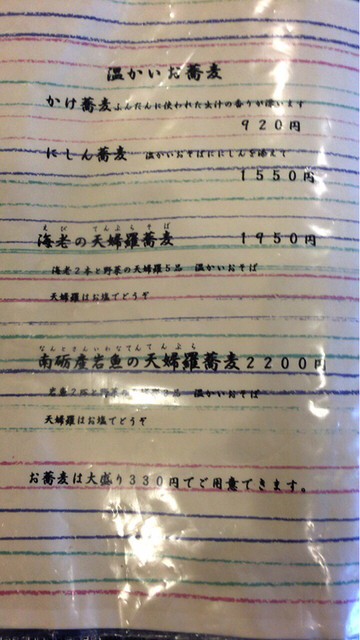 温かいお蕎麦
かけ蕎麦 ふんだんに使われた出汁の香りが漂います
920円
にしん蕎麦 温かいおそばににしんを添えて
1550円
えび てんぷらそば
海老の天婦羅蕎麦 1950円
海老2本と野菜の天婦羅5品 温かいおそば
天婦羅はお塩でどうぞ
なんとさんいわな てんぷら
南砺産岩魚の天婦羅蕎麦2200円
岩魚2匹と野菜の 品 温かいおそば
天婦羅はお塩でどうぞ
お蕎麦は大盛り330円でご用意できます。